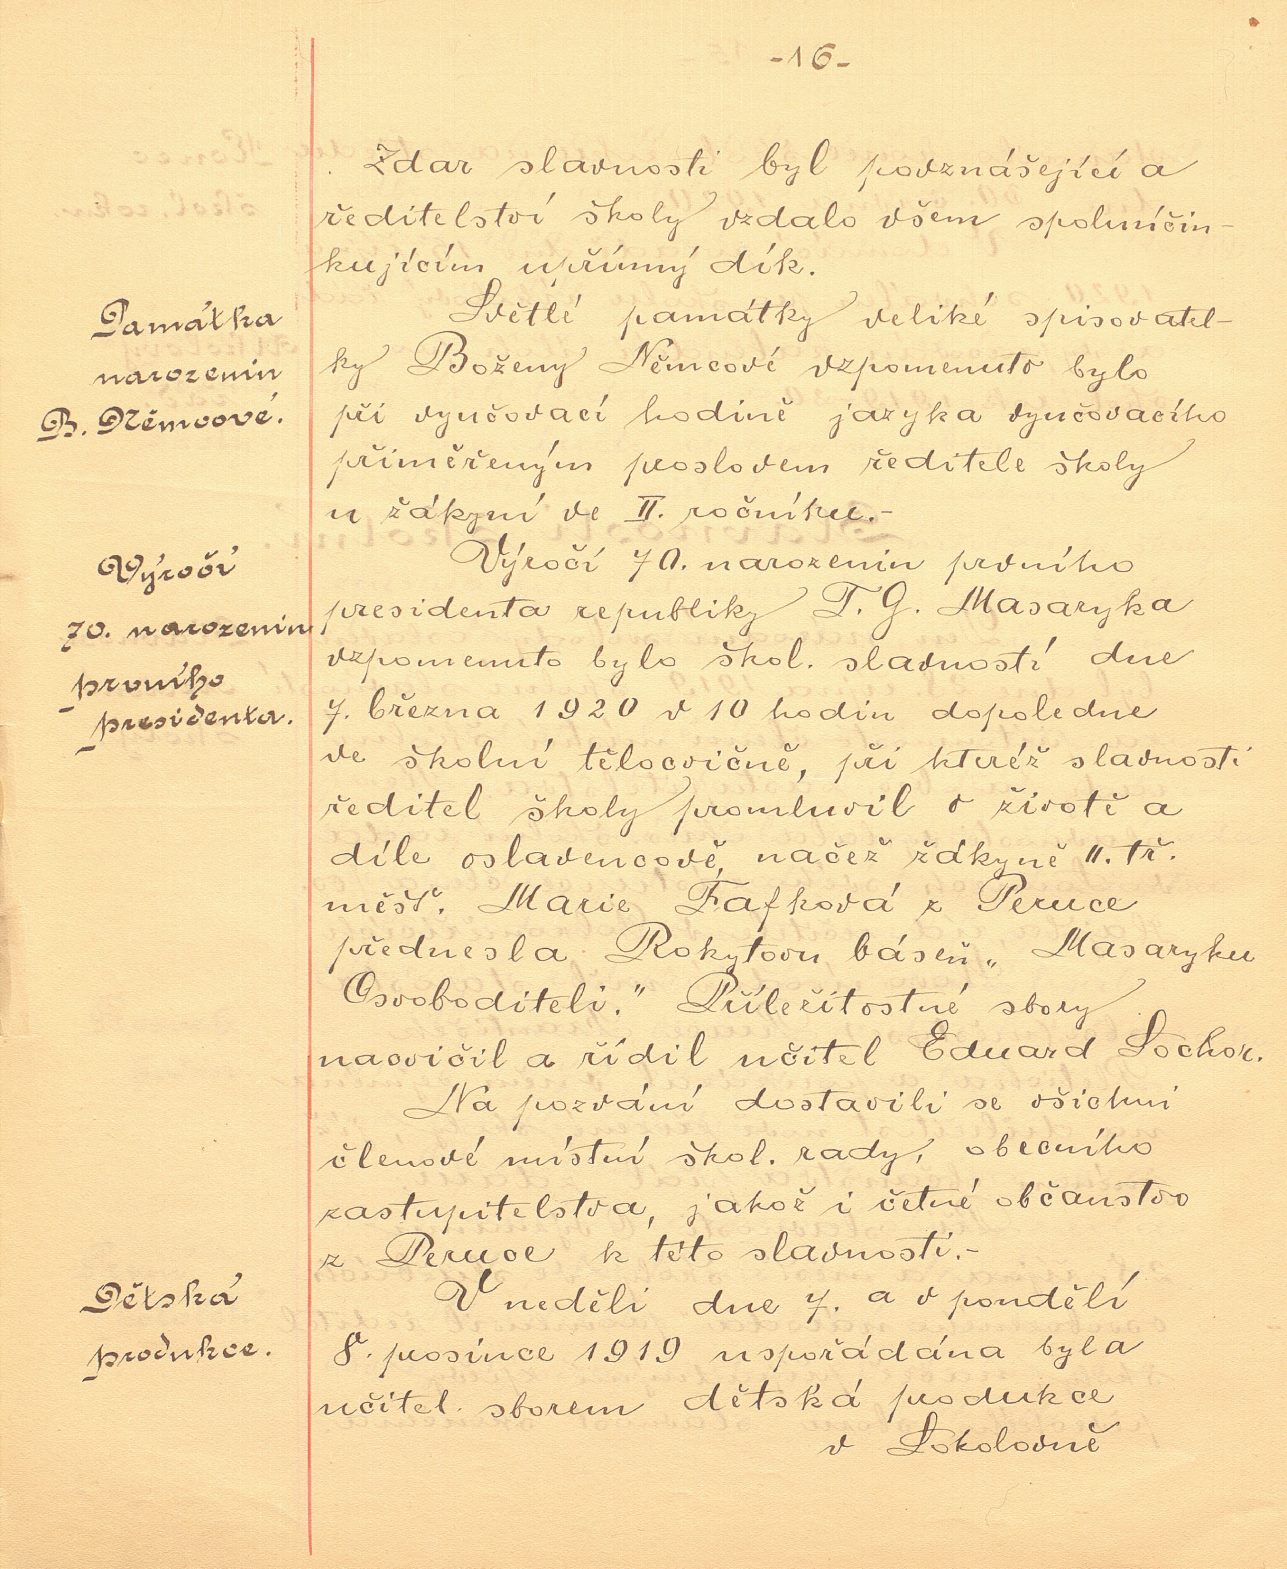 -16-
Zdar slavnosti byl povznášející a
ředitelství školy vzdalo všem spoluúčin-
kujícím upřímný dík.
Památka
narozenin
B. Němcové.
Světlé památky veliké spisovatel-
ky Boženy Němcové vzpomenuto bylo
při vyučovací hodině jazyka vyučovacího
přiměřeným proslovem ředitele školy
u žákyní ve II. ročníku.-
Výročí
70. narozenin
prvního
presidenta.
Výročí 70. narozenin prvního
presidenta republiky T. G. Masaryka
vzpomenuto bylo škol. slavností dne
7. března 1920 v 10 hodin dopoledne
ve školní tělocvičně, při kteréž slavnosti
ředitel školy promluvil o životě a
díle oslavencově, načež žákyně II. tř.
měšť. Marie Fafková z Peruce
přednesla Rokytovu báseň „Masaryku
Osvoboditeli." Příležitostné sbory
nacvičil a řídil učitel Eduard Lochor.
Na pozvání dostavili se všichni
členové místní škol. rady, obecního
zastupitelstva, jakož i četné občanstvo
z Peruce k této slavnosti.-
Dětská
produkce.
V neděli dne 7. a v pondělí
8. prosince 1919 uspořádána byla
učitel. sborem dětská produkce
v Sokolovně